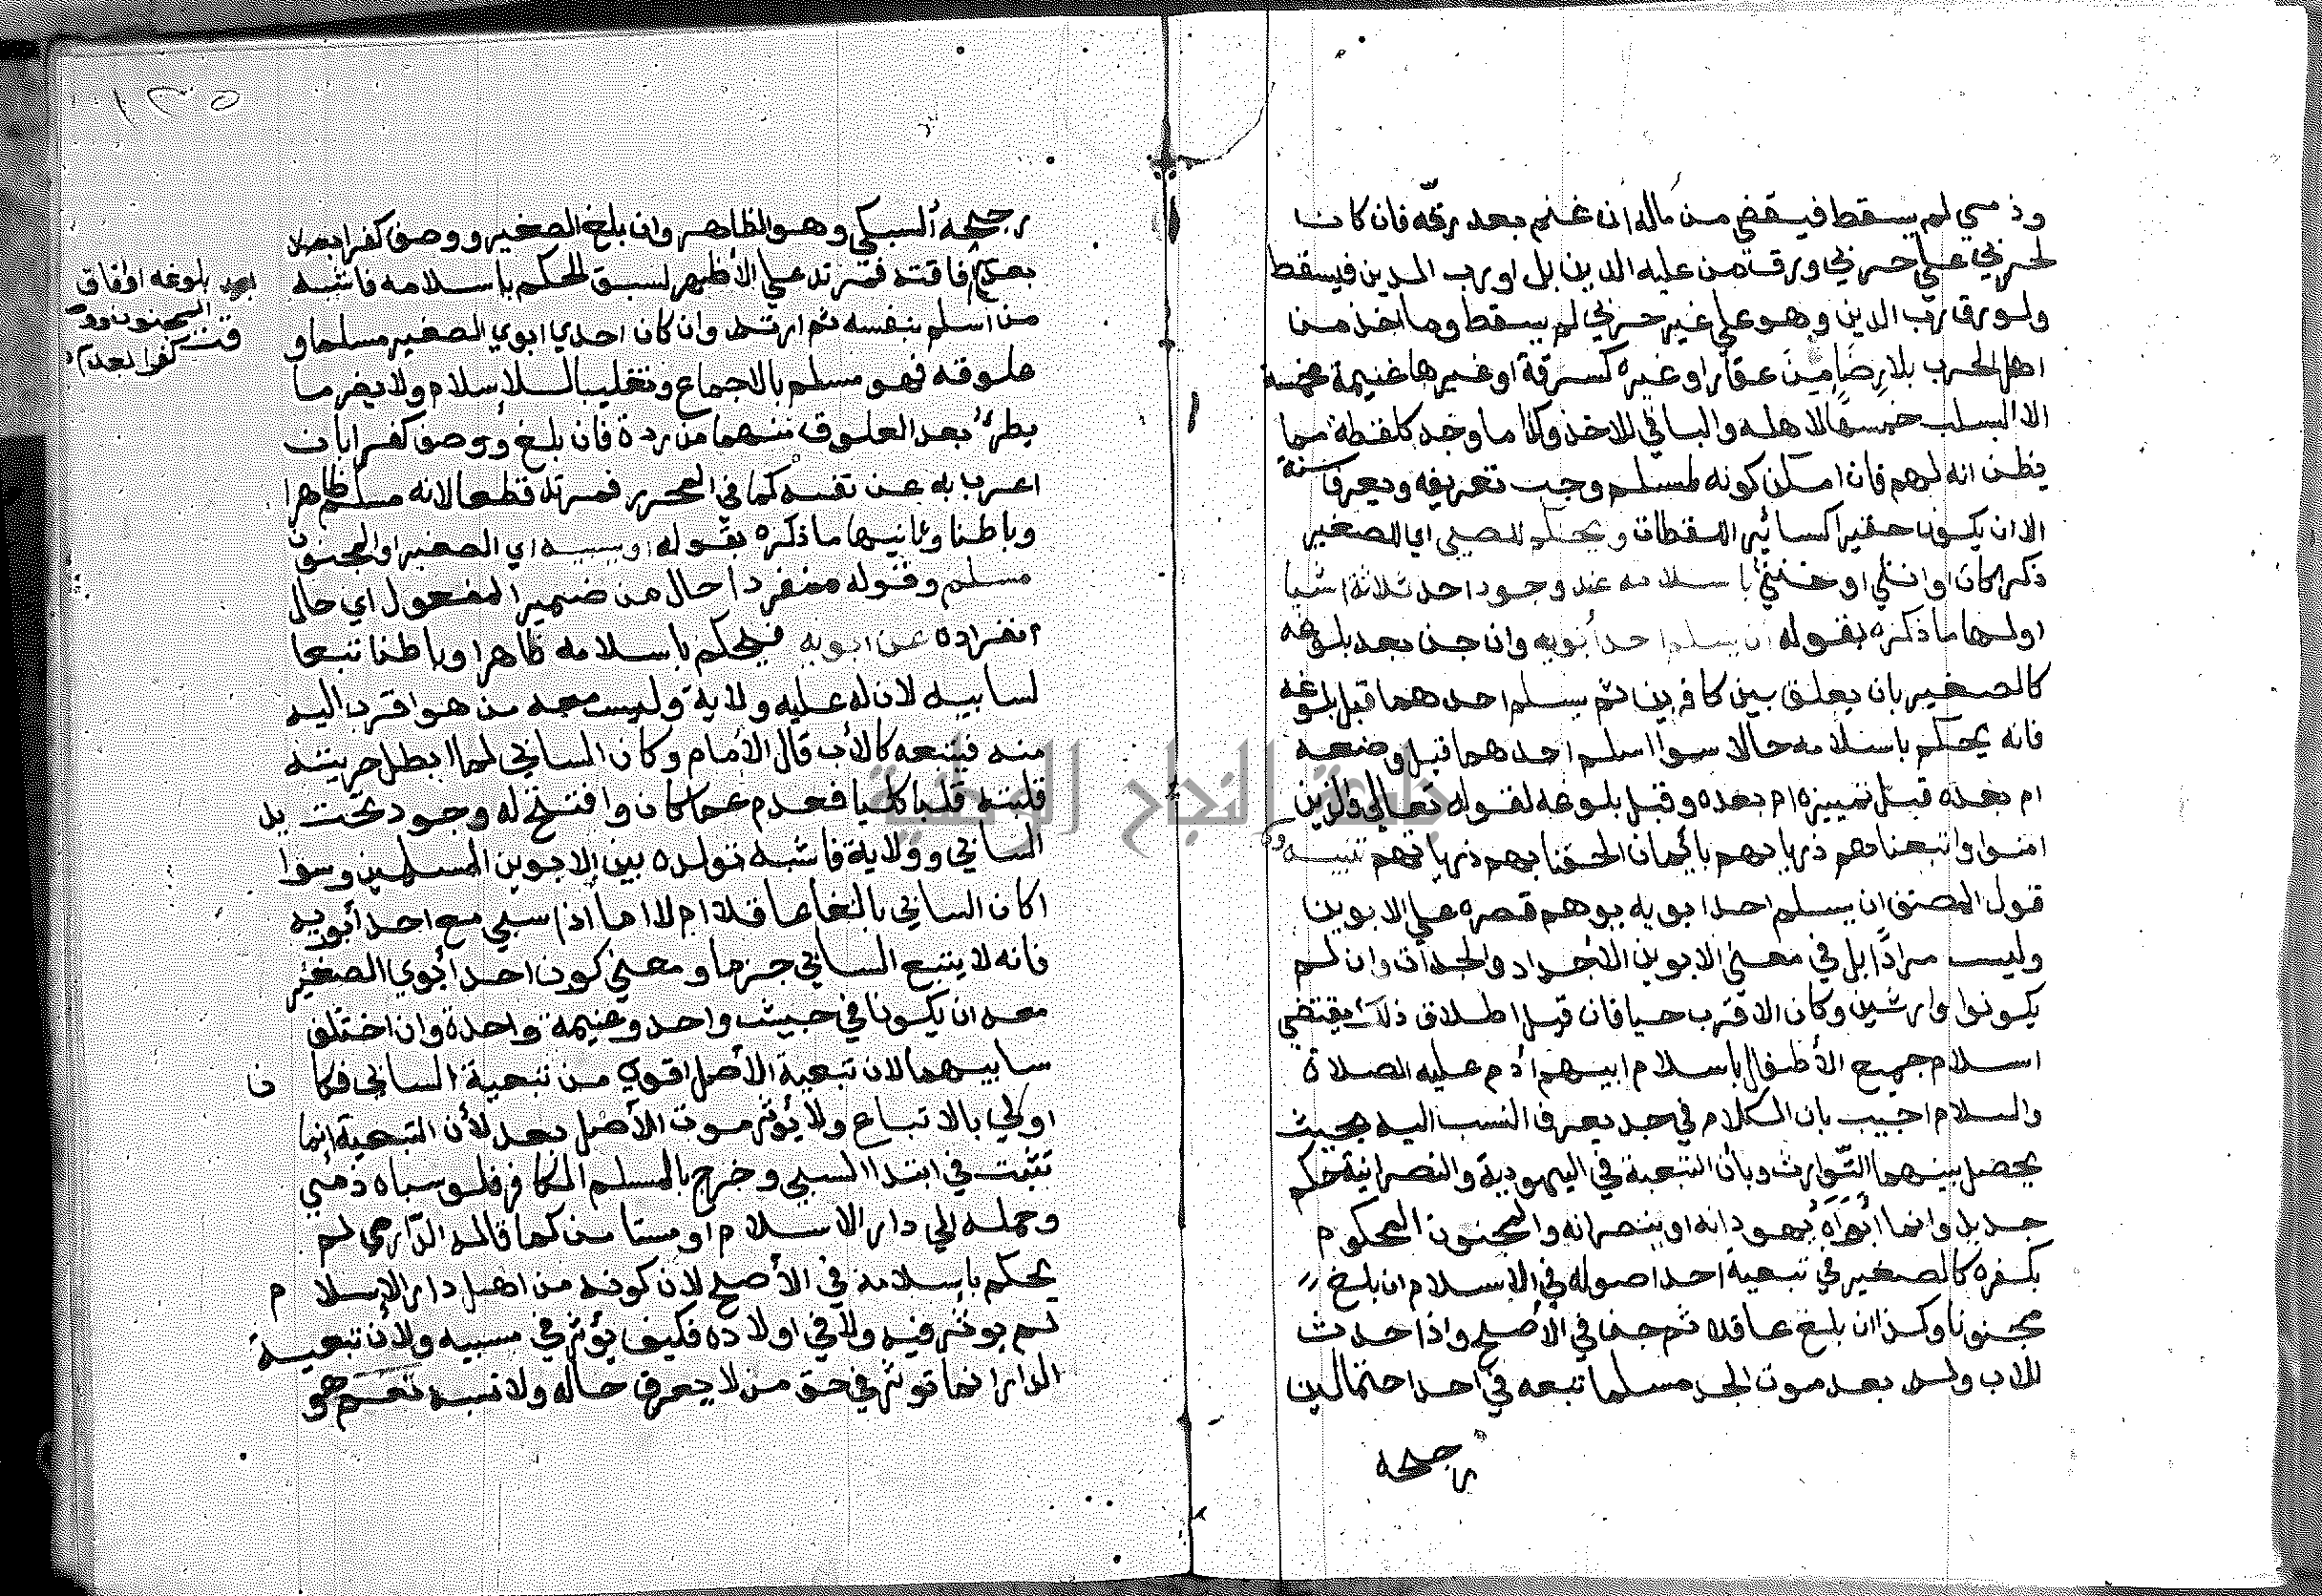 وذمي لم يسقط فيقضي من ماله ان غنم بعد رقه فان كان
لحربي علي حربي ورق من عليه الدين بل او رب الدين فيسقط
ولو رق رب الدين وهو علي غير حربي لم يسقط وما اخذ من
اهل الحرب بلا رضا من عقار او غيره كسرقة او غيرها غنيمة مخمسة
الا السلب خمسها لاهله والباقي للاخذ وكذا ما وجد كلقطة مما
يظن انه لهم فان امكن كونه لمسلم وجب تعريفه ويعرف سنة
الا ان يكون حقيرا كسائر اللقطات ويحكم للصبي اي للصغير
ذكرا كان او انثي او خنثي باسلامه عند وجود احد ثلاثة اشيا
اولها ما ذكره بقوله ان يسلم احد ابويه وان جن بعد بلوغه
كالصغير بان يعلق بين كافرين ثم يسلم احدهما قبل بلوغه
فانه يحكم باسلامه حالا سوا اسلم احدهما قبل وضعه
ام بعده قبل تمييزه ام بعده وقبل بلوغه لقوله تعالي والذين
امنوا واتبعناهم ذرياتهم بايمان الحقنا بهم ذرياتهم تنبيه
قول المصنف ان يسلم احد ابويه يوهم قصره علي الابوين
وليس مرادا بل في معني الابوين الاجداد والجدات وان لم
يكونوا وارثين وكان الاقرب حيا فان قيل اطلاق ذلك يقتضي
اسلام جميع الأطفال باسلام ابيهم أدم عليه الصلاة
والسلام اجيب بان الكلام في جد يعرف النسب اليه بحيث
يحصل بينهما التوارث وبأن التبعية في اليهودية والنصرانية حكم
جديد وانما أبواه يهودانه او ينصرانه والمجنون المحكوم
بكفره كالصغير في تبعية احد اصوله في الاسلام ان بلغ
مجنونا وكذا ان بلغ عاقلا ثم جن في الأصح واذا حدث
للاب ولد بعد موت الجد مسلما تبعه في احد احتمالين
رجحه
رجحه السبكي وهو الظاهر وان بلغ الصغير ووصف كفرا بعد
بعد بلوغه او افاق
المجنون ووصف
كفرا بعد
فاقته فمرتد علي الأظهر لسبق الحكم باسلامه فاشبه
من اسلم بنفسه ثم ارتد وان كان احدي ابوي الصغير مسلما و
علوقه فهو مسلم بالاجماع وتغليبا للاسلام ولا يضر ما
يطرأ بعد العلوق منهما من ردة فان بلغ ووصف كفرا بان
اعرب به عن نفسه كما في المحرر فمرتد قطعا لانه مسلم ظاهرا
وباطنا وثانيها ما ذكره بقوله او سبيه اي الصغير او المجنون
مسلم وقوله منفردا حال من ضمير المفعول اي حال
انفراده عن ابويه فيحكم باسلامه ظاهرا وباطنا تبعا
لسابيه لان له عليه ولاية وليس معه من هو اقرب اليه
منه فيتبعه كالأب قال الأمام وكان السابي لما ابطل حريته
قلبته قلبا كليا فعدم عما كان وافتتح له وجود تحت يد
السابي وولاية فاشبه تولده بين الابوين المسلمين وسوا
اكان السابي بالغا عاقلا ام لا اما اذا سبي مع احد أبويه
فانه لا يتبع السابي جزما ومعني كون احد أبوي الصغير
معه ان يكونا في جيش واحد وغنيمة واحدة وان اختلف
سابيهما لان تبعية الأصل اقوي من تبعية السابي فكان
اولي بالاتباع ولا يؤثر موت الأصل بعد لأن التبعية انما
تثبت في ابتدا السبي وخرج بالمسلم الكافر فلو سباه ذمي
وحمله الي دار الاسلام او مستامن كما قاله الدارمي لم
يحكم باسلامه في الأصح لان كونه من اهل دار الإسلام
لم يوثر فيه ولا في اولاده فكيف يؤثر في مسبيه ولأن تبعية
الدار انما توثر في حق من لا يعرف حاله ولا نسبه نعم هو